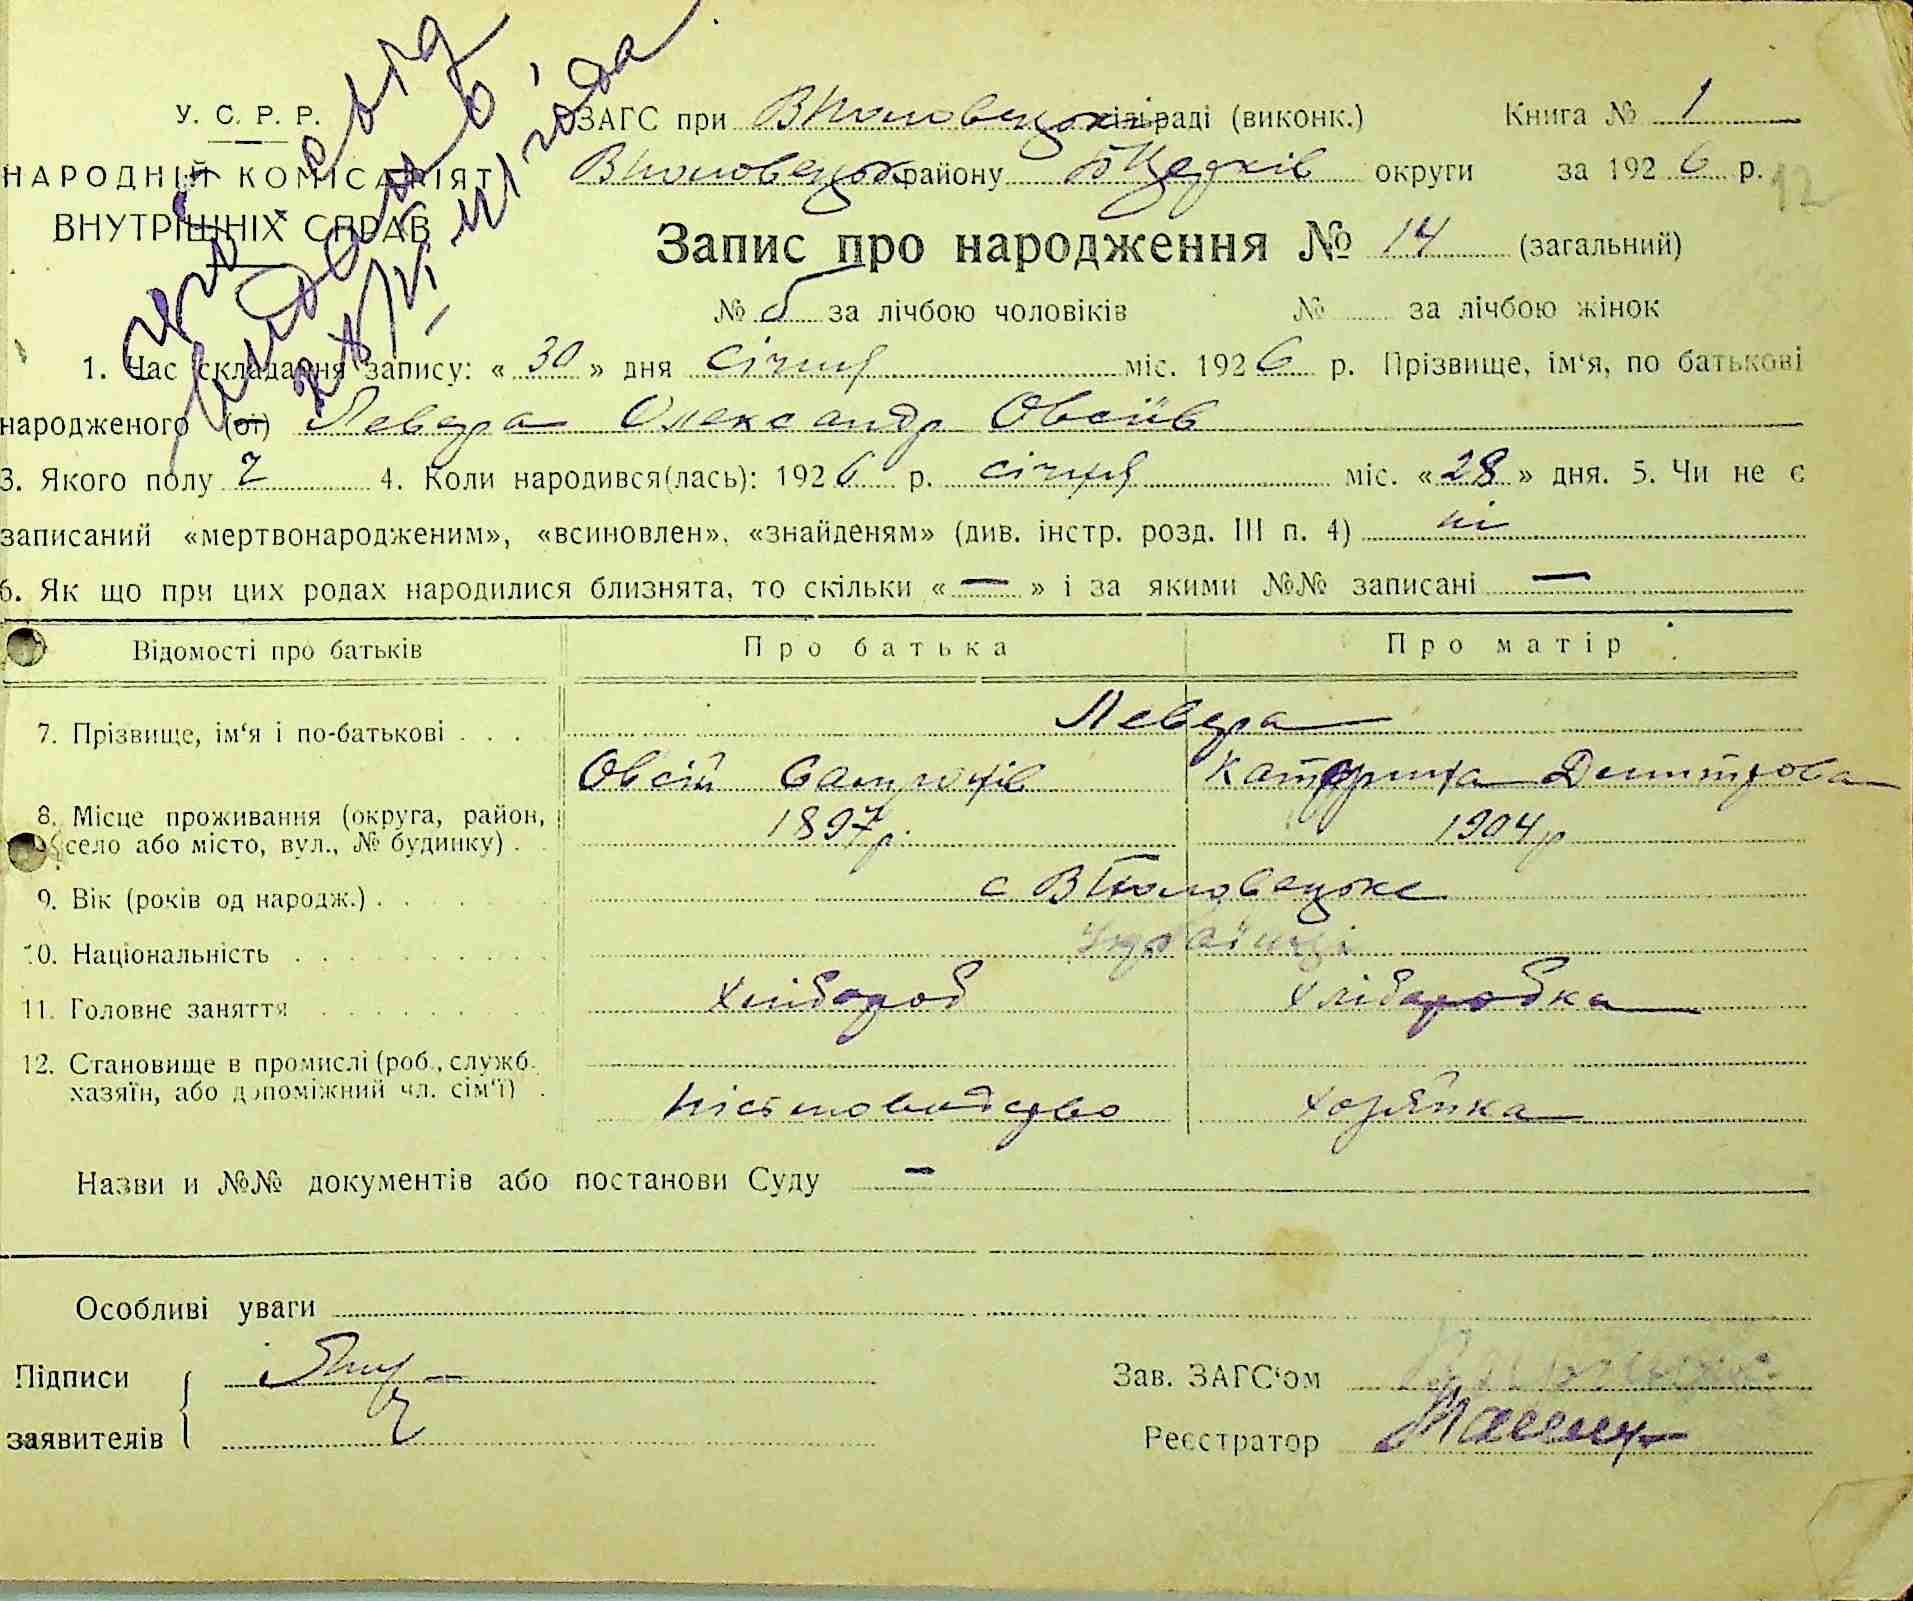 У. С. Р. Р.
НАРОДНІЙ КОМІСАРІЯТ
ВНУТРІШНІХ СПРАВ
ЗАГС при ВПоловецьк сільраді (виконк.) Книга № 1
ВПоловецьк району БЦерків округи за 1926 р. 12
Запис про народження № 14 (загальний)
№ 5 за лічбою чоловіків № за лічбою жінок
1. Час складання запису: « 30 » дня січня міс. 1926 р. Прізвище, ім‘я, по батькові
народженого (ої) Левера Олександр Овсіїв
3. Якого полу ч 4. Коли народився(лась): 1926 р. січня міс. « 28 » дня. 5. Чи не є
записаний «мертвонародженим», «всиновлен», «знайденям» (див. інстр. розд. III п. 4) ні
6. Як що при цих родах народилися близнята, то скільки « — » і за якими №№ записані —
Відомості про батьків Про батька Про матір
7. Прізвище, ім‘я і по-батькові . . . Левера
Овсій Катерина Дмитрова
8. Місце проживання (округа, район, село або місто, вул., № будинку) . 1897р. 1904р
9. Вік (років од народж.) . с ВПоловецьке
10. Національність Українці
11. Головне заняття Хлібороб Хліборобка
12. Становище в промислі (роб., служб. хазяїн, або допоміжний чл. сім‘ї) . Хозяйка
Назви и №№ документів або постанови Суду —
Особливі уваги
Підписи
заявителів
Зав. ЗАГС‘ом
Реєстратор